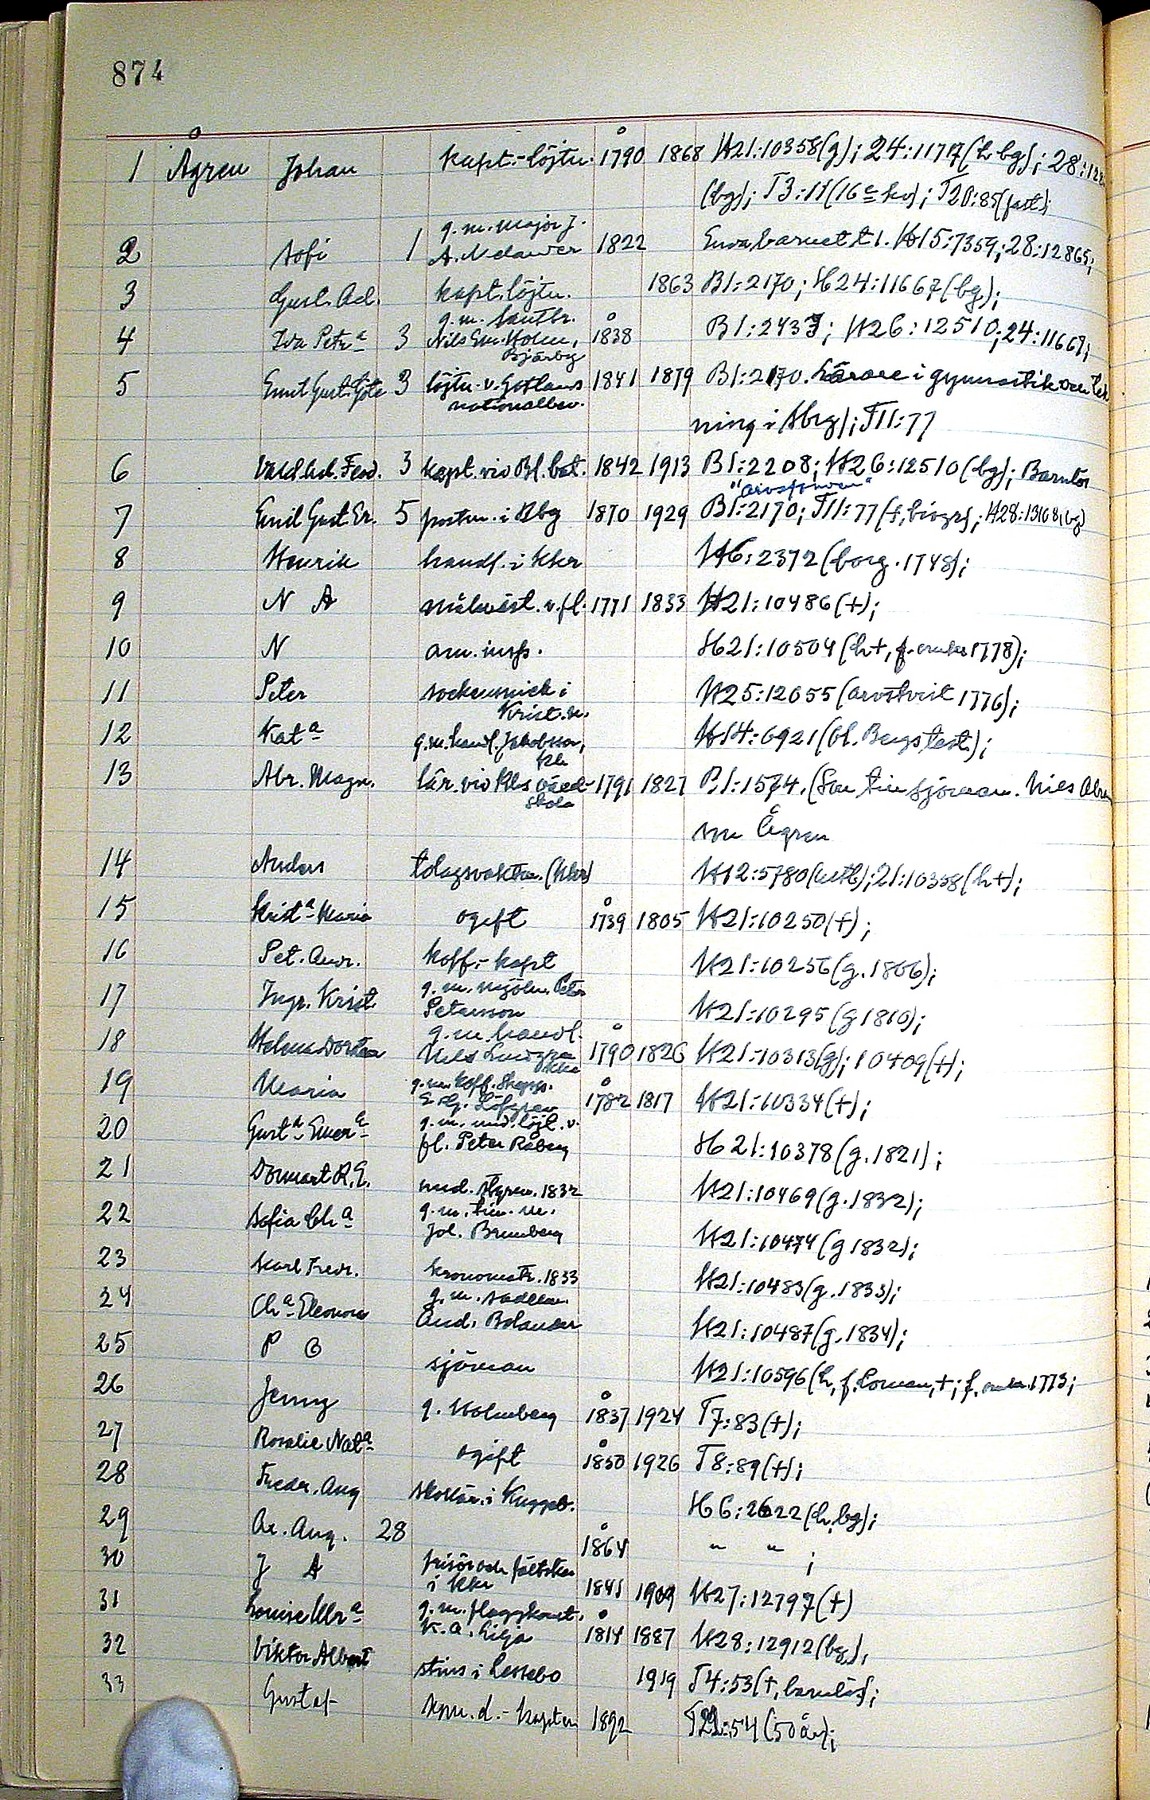 874
1 Ågren Johan kapt.-löjtn. 1790 1868 H21:10358(g); 24:11717(h bg); 28:
(bg); T3:11(16 ); T20:85(fast);
2 Sofi 1 g.m. major J. A. Nelander 1822 Enda barnet t 1. H15:7359; 28:12865;
3 Gust. Ad. kapt. löjtn. 1863 B1:2170; H24:11667(bg);
4 Ida Petr a 3 g.m. lantbr. Nils Em. Holm, Bjärby 1838 B1:2433; H26:12510; 24:11667;
5 Emil Gust. Göte 3 löjtn. v. Gotlands nationalbev. 1841 1879 B1:2170. Lärare i gymnastik och teck
ning i Kbg); T11:77
6 Vald. Ad. Ferd. 3 kapt. vid Bl. bat. 1842 1913 B1:2208; H26:12510(bg); Barnlös
7 Emil Gust Er. 5 postm. i Kbg 1870 1929 B1:2170; T11:77(f, biogr); H28:13168(bg)
8 Henrik handl. i Kkr H6:2372(borg. 1748);
9 N A v. fl. 1771 1833 H21:10486(+);
10 N am. insp. H21:10504(h+, f. enka 1778);
11 Peter sockensmed i Krist. H25:12055(arvstvist 1776);
12 Kat a g.m. handl. Jakobsson, Kkr H14:6921(bl. Bergs test);
13 Abr. Magn. lär. vid Kbs skola 1791 1827 B1:1574. (Son till sjöman. Nils Abra
son Ågren
14 Anders tolagsvaktm. (Kkr) H12:5780( ); 21:10358(h+);
15 Krist a Maria ogift 1739 1805 H21:10250(+);
16 Pet. Andr. koff.-kapt H21:10256(g. 1806);
17 Ingr. Krist. g.m. mjöln. Peter Petersson H21:10295(g 1810);
18 Helena Dorotea g.m. handl. Nils Lundgren Kkr 1790 1826 H21:10313(g); 10409(+);
19 Maria g.m. koff. Skepps. Löfgren 1782 1817 H21:10334(+);
20 Gust a Emer a g.m. und. löjt. v. fl. Peter Råberg H21:10378(g. 1821);
21 Dormart R. E. med. 1832 H21:10469(g. 1832);
22 Sofia Ch a g.m. Joh. Brunberg H21:10474(g 1832);
23 Karl Fredr. 1833 H21:10483(g. 1833);
24 Ch a Eleonora g.m. sadelm. And. Bolander H21:10487(g. 1834);
25 P B sjöman H21:10596(h, f. Loman, +; f. enka 1773;
26 Jenny g. Holmberg 1837 1924 T7:83(+);
27 Rosalie Nat a ogift 1850 1926 T8:89(+);
28 Fredr. Aug skollär. i Kuggeb. H6:2622(h, bg);
29 Ax. Aug. 28 1864 " " ;
30 J A frisör och fältskär i Kkr 1841 1909 H27:12797(+)
31 Louise Ulr a g.m. flaggkonst. K. A. Lilja 1814 1887 H28:12912(bg);
32 Viktor Albert stins i Lessebo 1919 T4:53(+, barnlös);
33 Gustaf kapten 1892 T22:54(50 år);